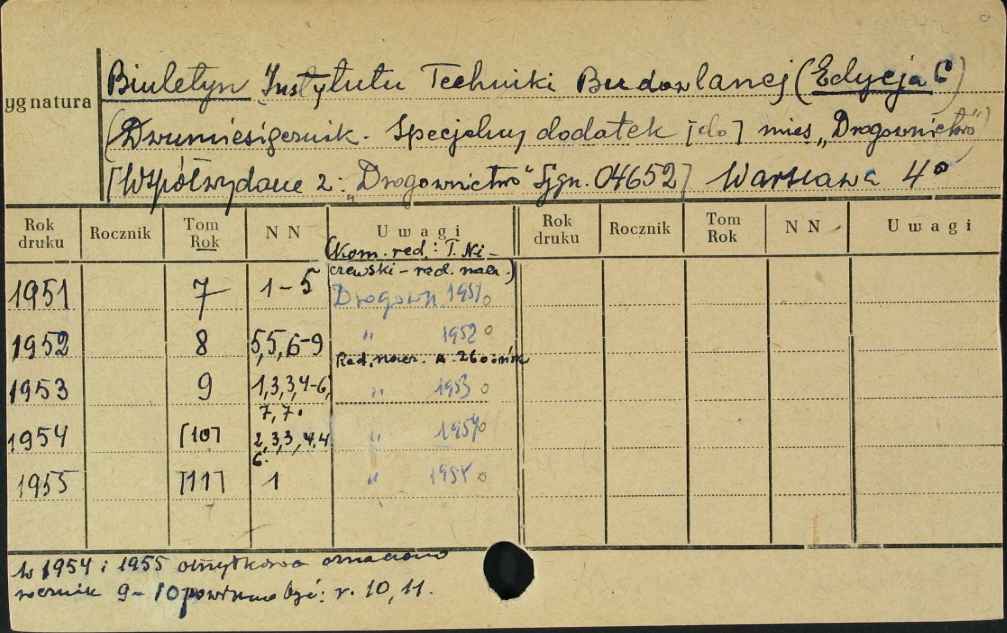 Biuletyn Instytutu Techniki Budowlanej (Edycja C)
ygnatura
(Dwumiesięcznik. Specjalny dodatek [do] mies. „Drogownictwo")
[Współwydane z: „Drogownictwo" Sygn. 04652] Warszawa 4°
Rok druku Rocznik Tom Rok NN Uwagi Rok druku Rocznik Tom Rok NN Uwagi
(Kom. red.: T. Ni-
czewski - red. nacz.)
1951 7 1-5 Drogown. 1951
1952 8 5,5,6-9 „ 1952
Red. nacz.
1953 9 1,3,3,4-6, „ 1953
7,7.
1954 [10] 2,3,3,4,4 „ 1954
6.
1955 [11] 1 „ 1955
w 1954 i 1955 omyłkowo oznaczono
rocznik 9-10 powinno być: r. 10, 11.